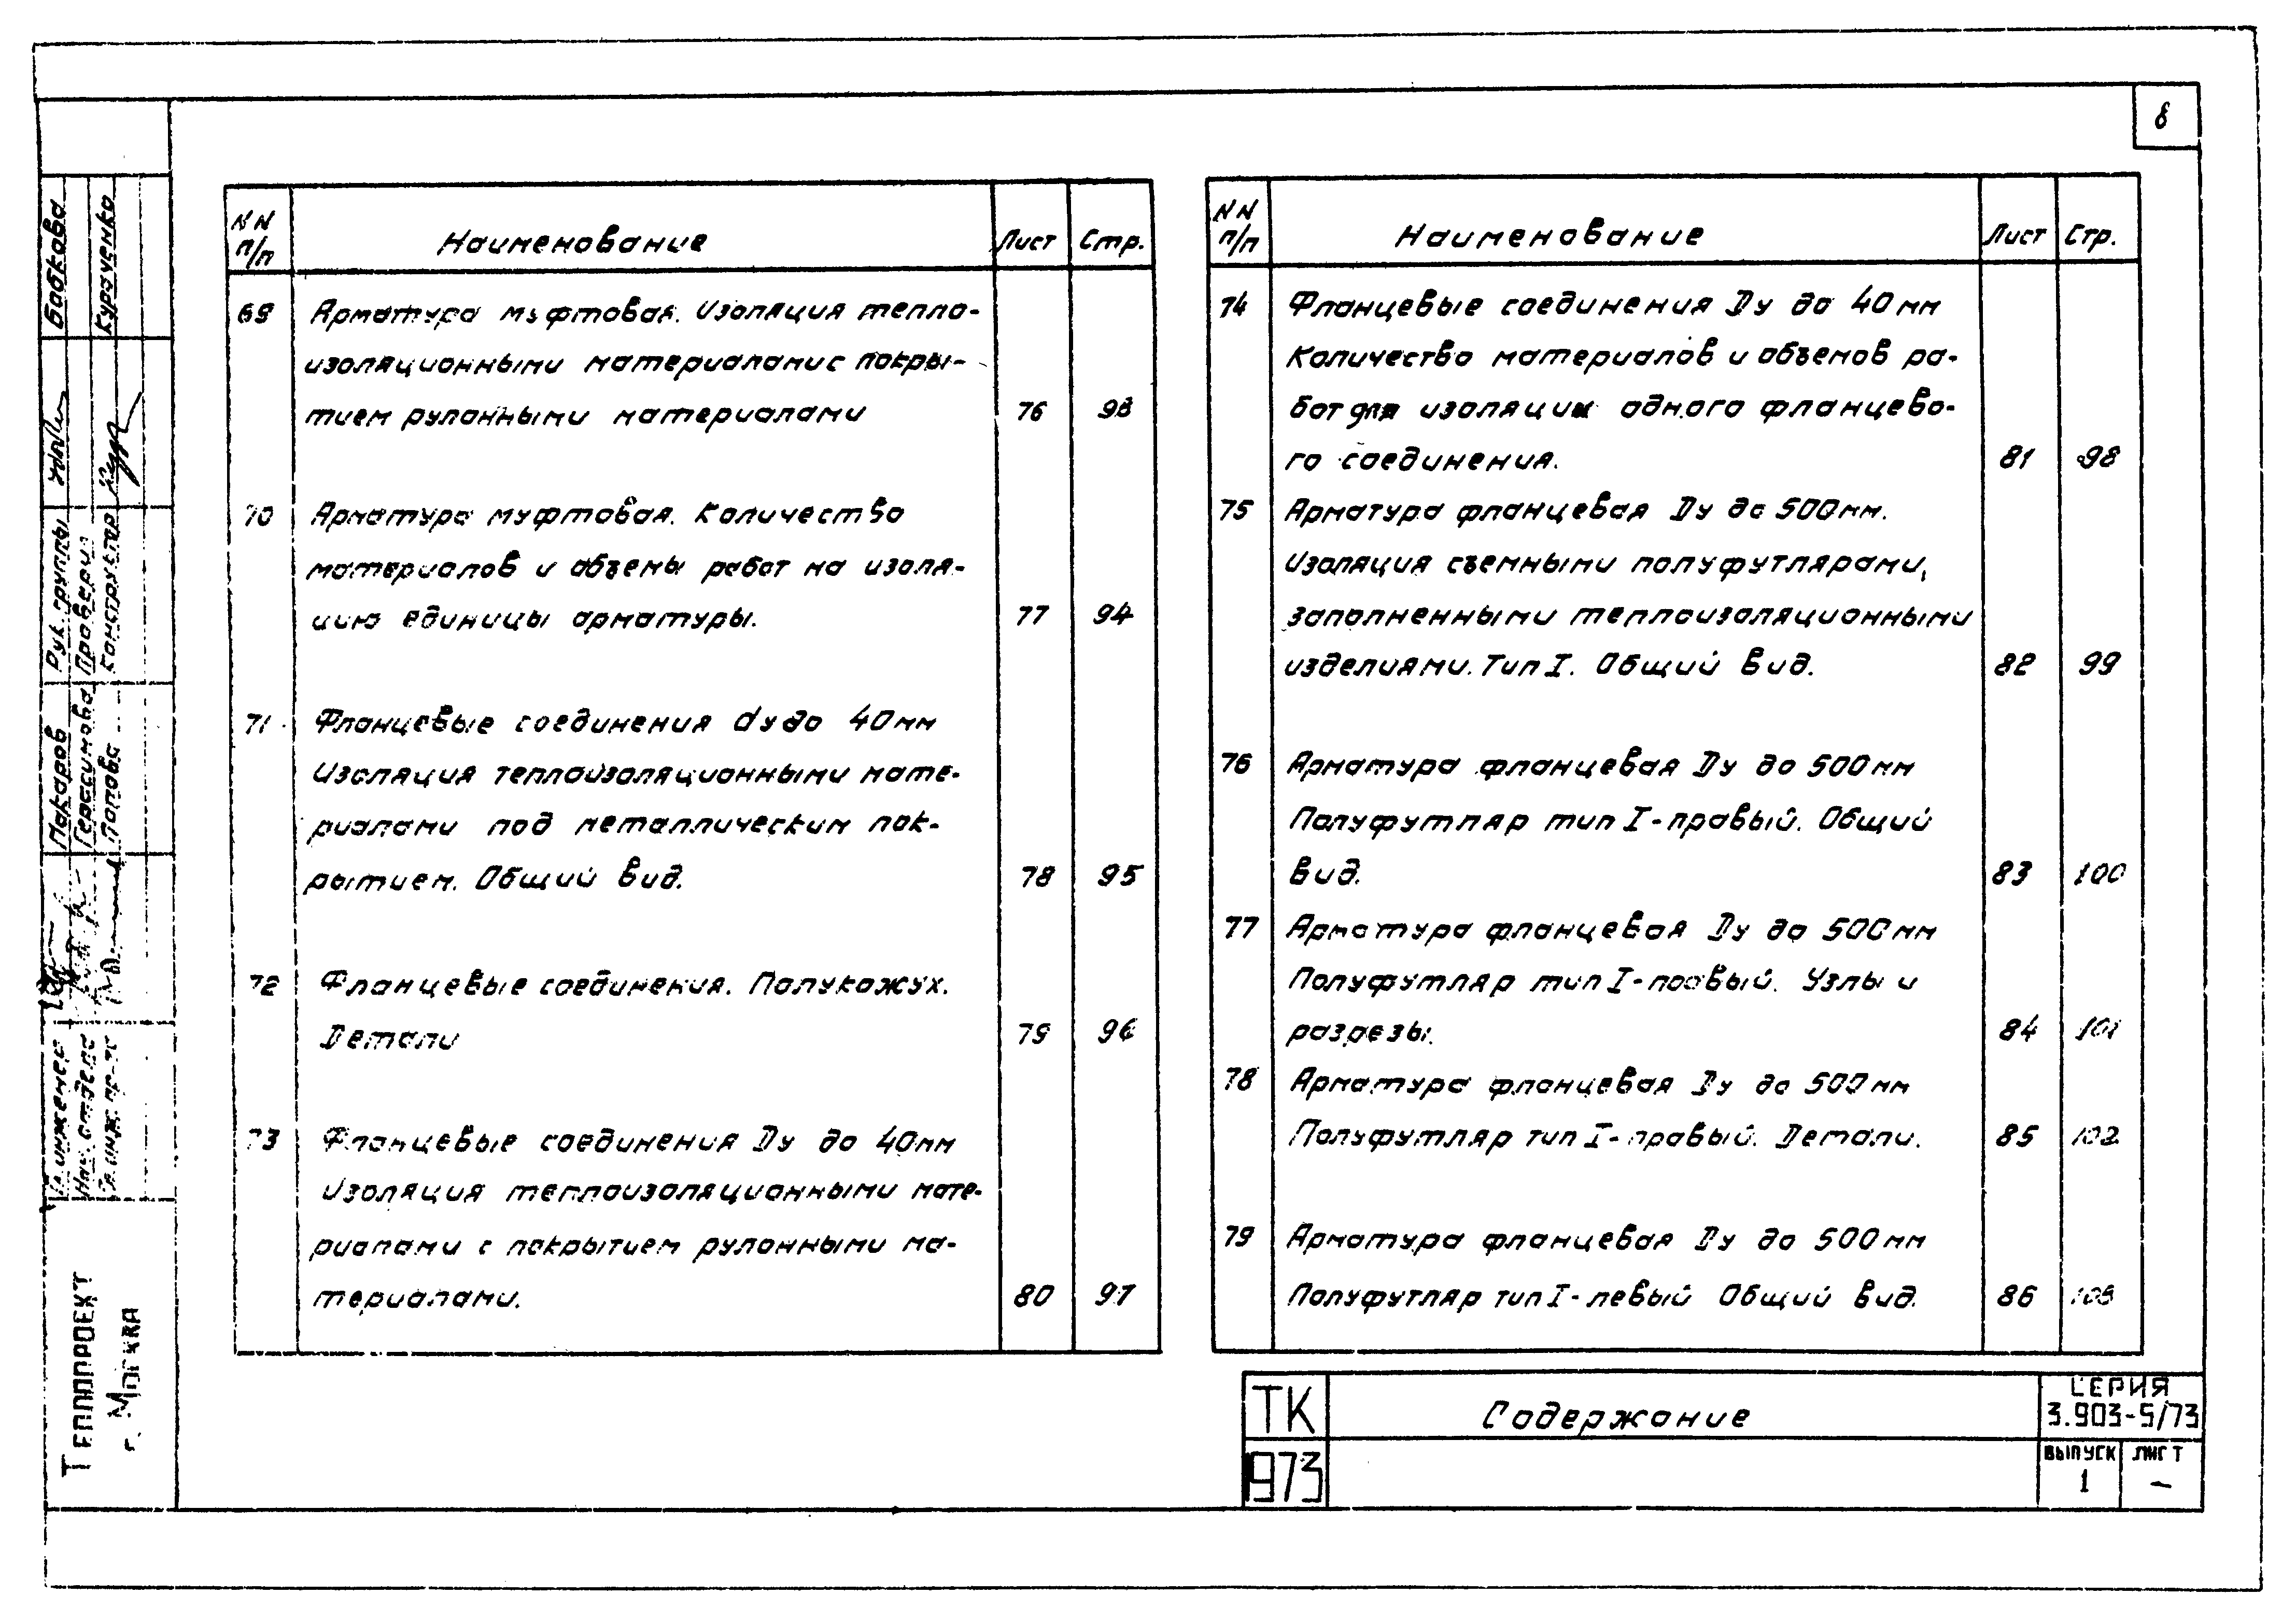 8
NN п/п Наименование Лист Стр.
69 Арматура муфтовая. Изоляция тепло-
изоляционными материалами с покры-
тием рулонными материалами 76 93
70 Арматура муфтовая. Количество
материалов и объемы работ на изоля-
цию единицы арматуры. 77 94
71 Фланцевые соединения dу до 40мм
Изоляция теплоизоляционными мате-
риалами под металлическим пок-
рытием. Общий вид. 78 95
72 Фланцевые соединения. Полукожух.
Детали 79 96
73 Фланцевые соединения Dу до 40мм
Изоляция теплоизоляционными мате-
риалами с покрытием рулонными ма-
териалами. 80 97
NN п/п Наименование Лист Стр.
74 Фланцевые соединения Dу до 40мм
Количество материалов и объемов ра-
бот для изоляции одного фланцево-
го соединения. 81 98
75 Арматура фланцевая Dу до 500мм.
Изоляция съемными полуфутлярами,
заполненными теплоизоляционными
изделиями. Тип I. Общий вид. 82 99
76 Арматура фланцевая Dу до 500мм
Полуфутляр тип I-правый. Общий
вид. 83 100
77 Арматура фланцевая Dу до 500мм
Полуфутляр тип I-правый. Узлы и
разрезы. 84 101
78 Арматура фланцевая Dу до 500мм
Полуфутляр тип I-правый. Детали. 85 102
79 Арматура фланцевая Dу до 500мм
Полуфутляр тип I-левый Общий вид. 86 103
ТК
1973
Содержание
СЕРИЯ
3.903-5/73
ВЫПУСК ЛИСТ
1 –
Теплопроект
г. Москва
Гл. инженер Макаров Рук. группы Бабкова
Нач. отдела Герасимова Проверил
Гл. инж. пр-та Попова Конструктор Кураченко